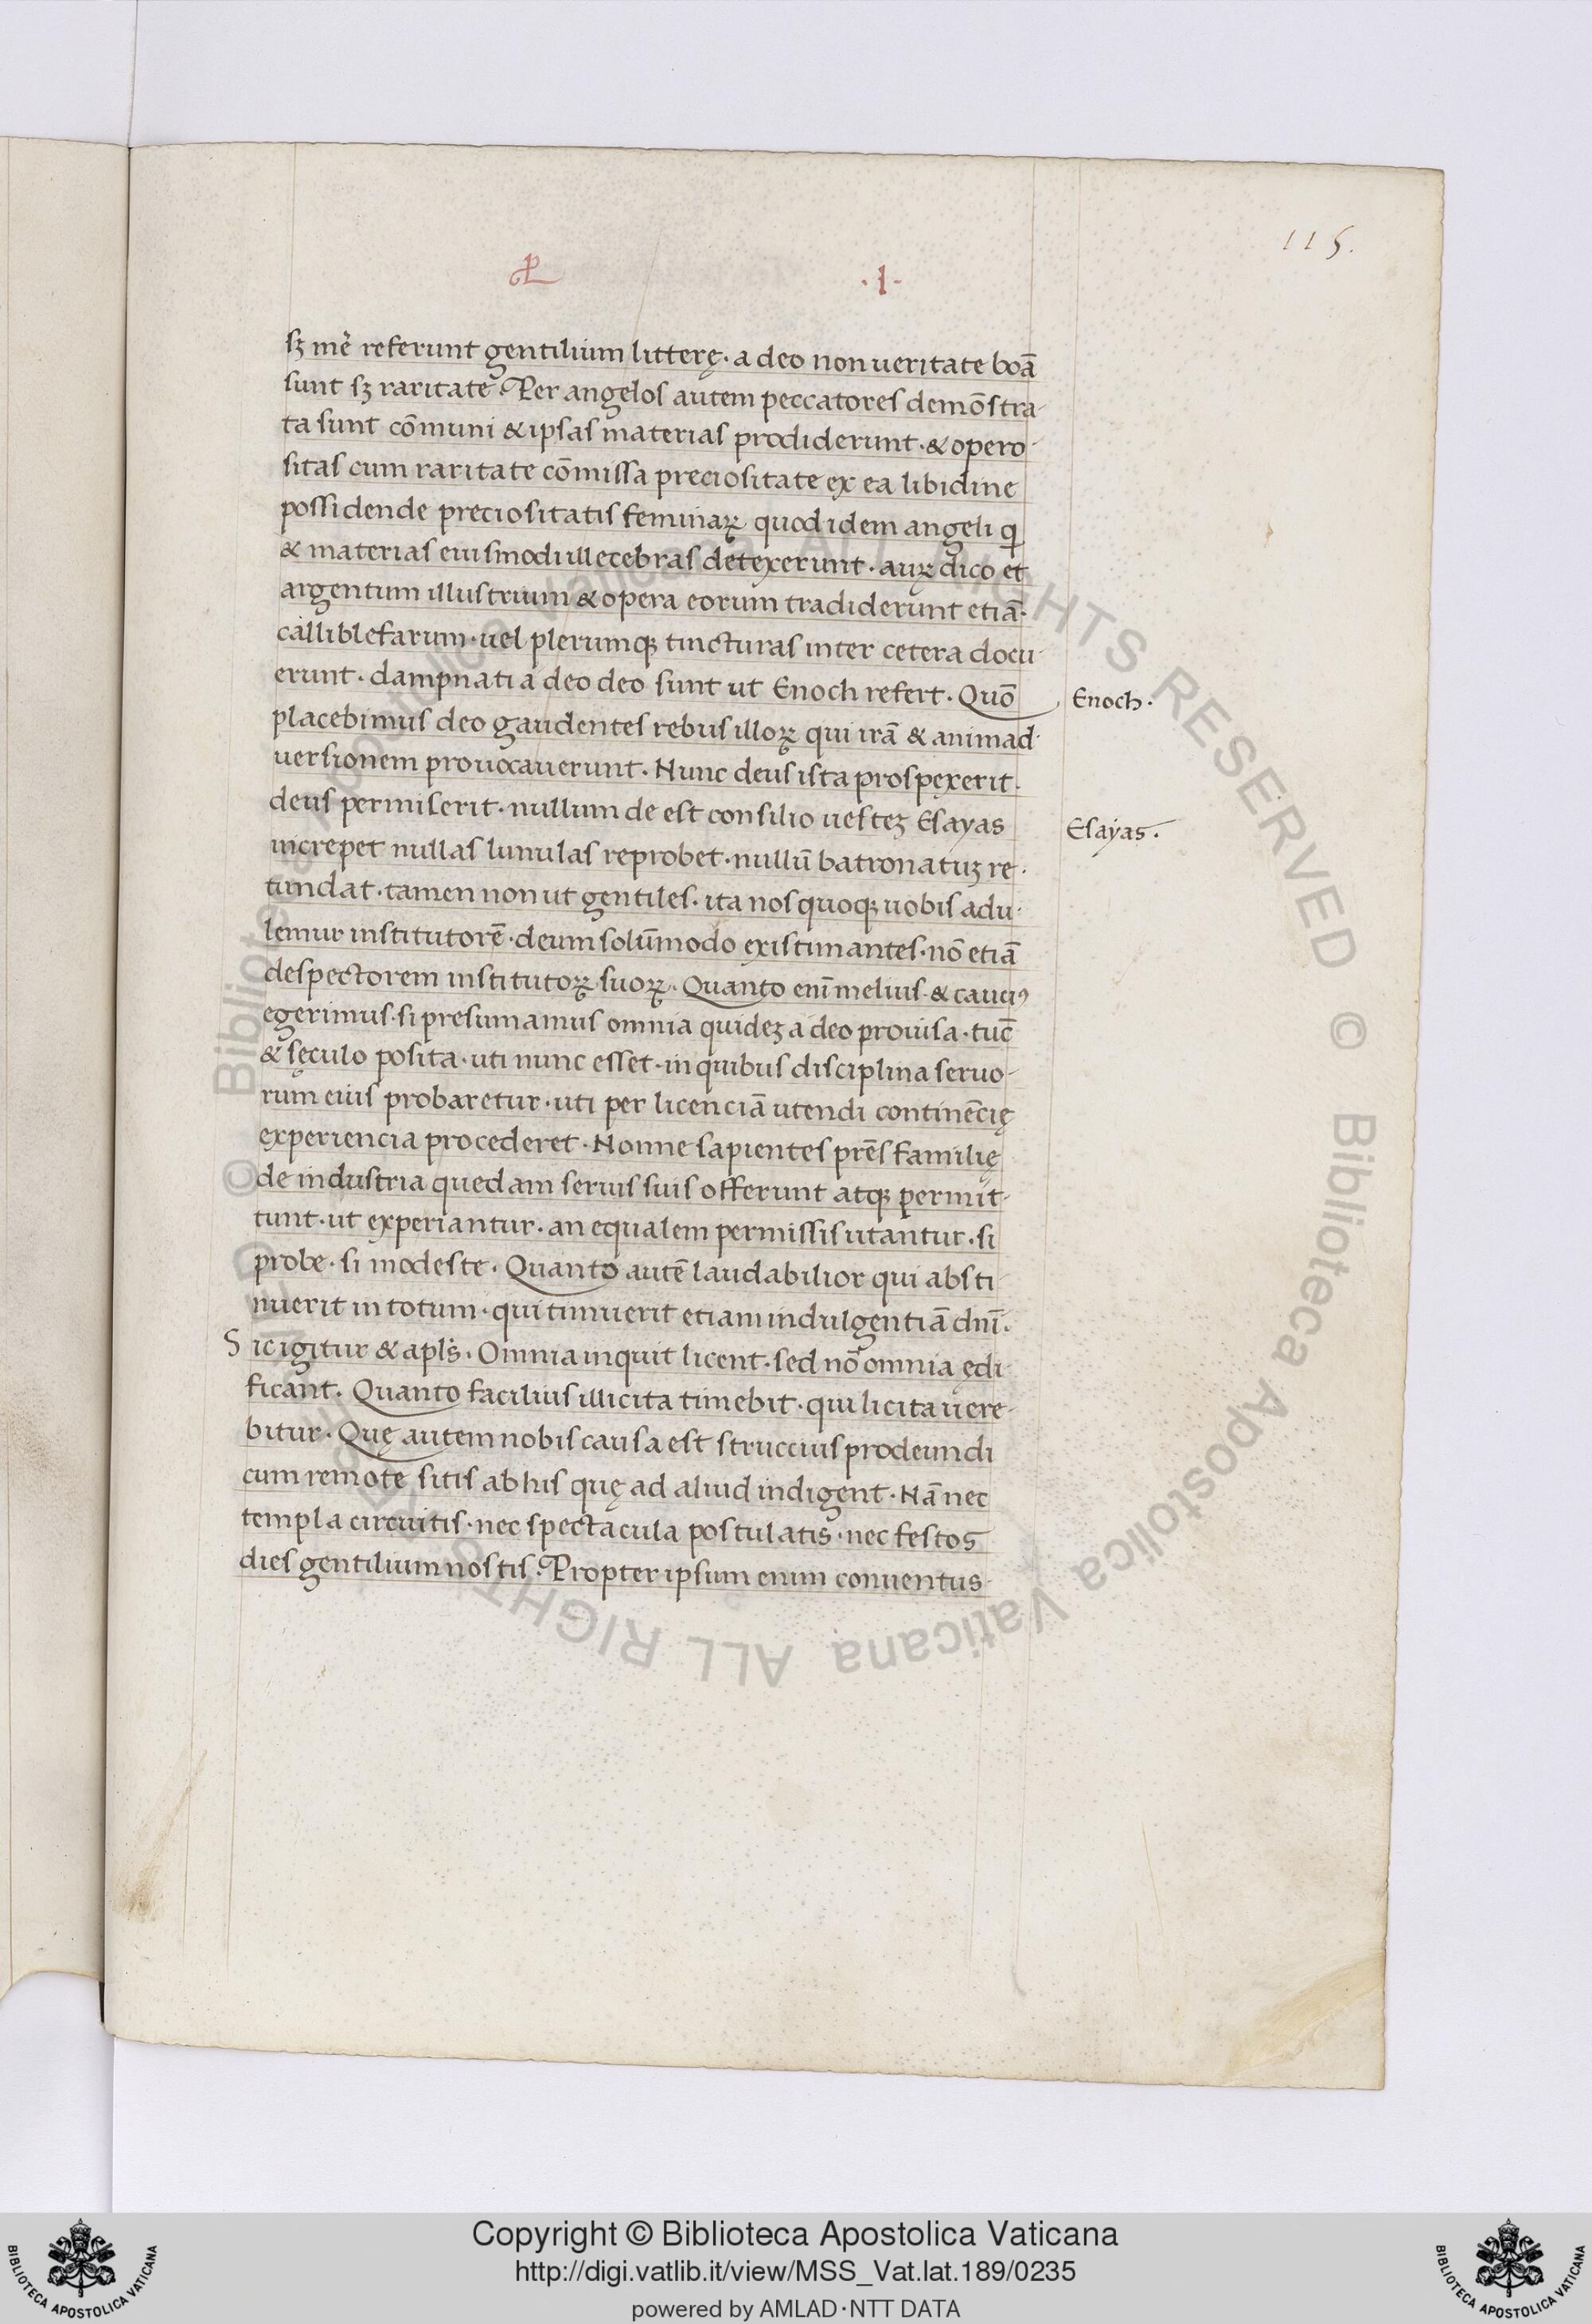 115.
PL
·I·
sꝫ me᷑ referunt gentilium litterę· a deo non ueritate boā
sunt sꝫ raritate· Per angelos autem peccatores demōstra-
ta sunt cōmuni & ipsas materias prodiderunt· & opero-
sitas cum raritate cōmissa preciositate ex ea libidine
possidende preciositatis feminaꝝ quod idem angeli q
& materias eiusmodi illecebras detexerunt· auꝝ dico et
argentum illustrium & opera eorum tradiderunt etiā·
calliblefarum· uel plerumqꝫ tincturas inter cetera docu-
erunt· dampnati a deo deo sunt ut Enoch refert· Quō
Enoch·
placebimus deo gaudentes rebus illoꝝ qui irā & animad-
uersionem prouocauerunt· Nunc deus ista prospexerit·
deus permiserit· nullum de est consilio uesteꝫ Esayas
Esayas·
increpet nullas lunulas reprobet· nullū batronatuꝫ re-
tundat· tamen non ut gentiles· ita nos quoqꝫ uobis adu-
lemur institutorē· deum solūmodo existimantes· nō etiā
despectorem institutoꝝ suoꝝ· Quanto eni᷑ melius & cauciꝰ
egerimus· si presumamus omnia quideꝫ a deo prouisa· tūc
& sęculo posita· uti nunc esset· in quibus disciplina seruo-
rum eius probaretur· uti per licenciā utendi continēcię
experiencia procederet· Nonne sapientes prēs familię
de industria quedam seruis suis offerunt atqꝫ permit-
tunt· ut experiantur· an equalem permissis utantur· si
probe· si modeste· Quanto autē laudabilior qui absti-
nuerit in totum· qui timuerit etiam indulgentiā dni᷑·
Sic igitur & apl's· Omnia inquit licent· sed nō omnia ędi
ficant· Quanto facilius illicita timebit· qui licita uere-
bitur· Quę autem nobis causa est struccius prodeundi
cum remote sitis ab his quę ad aliud indigent· Nā nec
templa circuitis· nec spectacula postulatis· nec festos
dies gentilium nostis· Propter ipsum enim conuentus-
Copyright © Biblioteca Apostolica Vaticana
http://digi.vatlib.it/view/MSS_Vat.lat.189/0235
powered by AMLAD·NTT DATA
BIBLIOTECA APOSTOLICA VATICANA
BIBLIOTECA APOSTOLICA VATICANA
© Biblioteca Apostolica Vaticana ALL RIGHTS RESERVED © Biblioteca Apostolica Vaticana ALL RIGHTS RESERVED